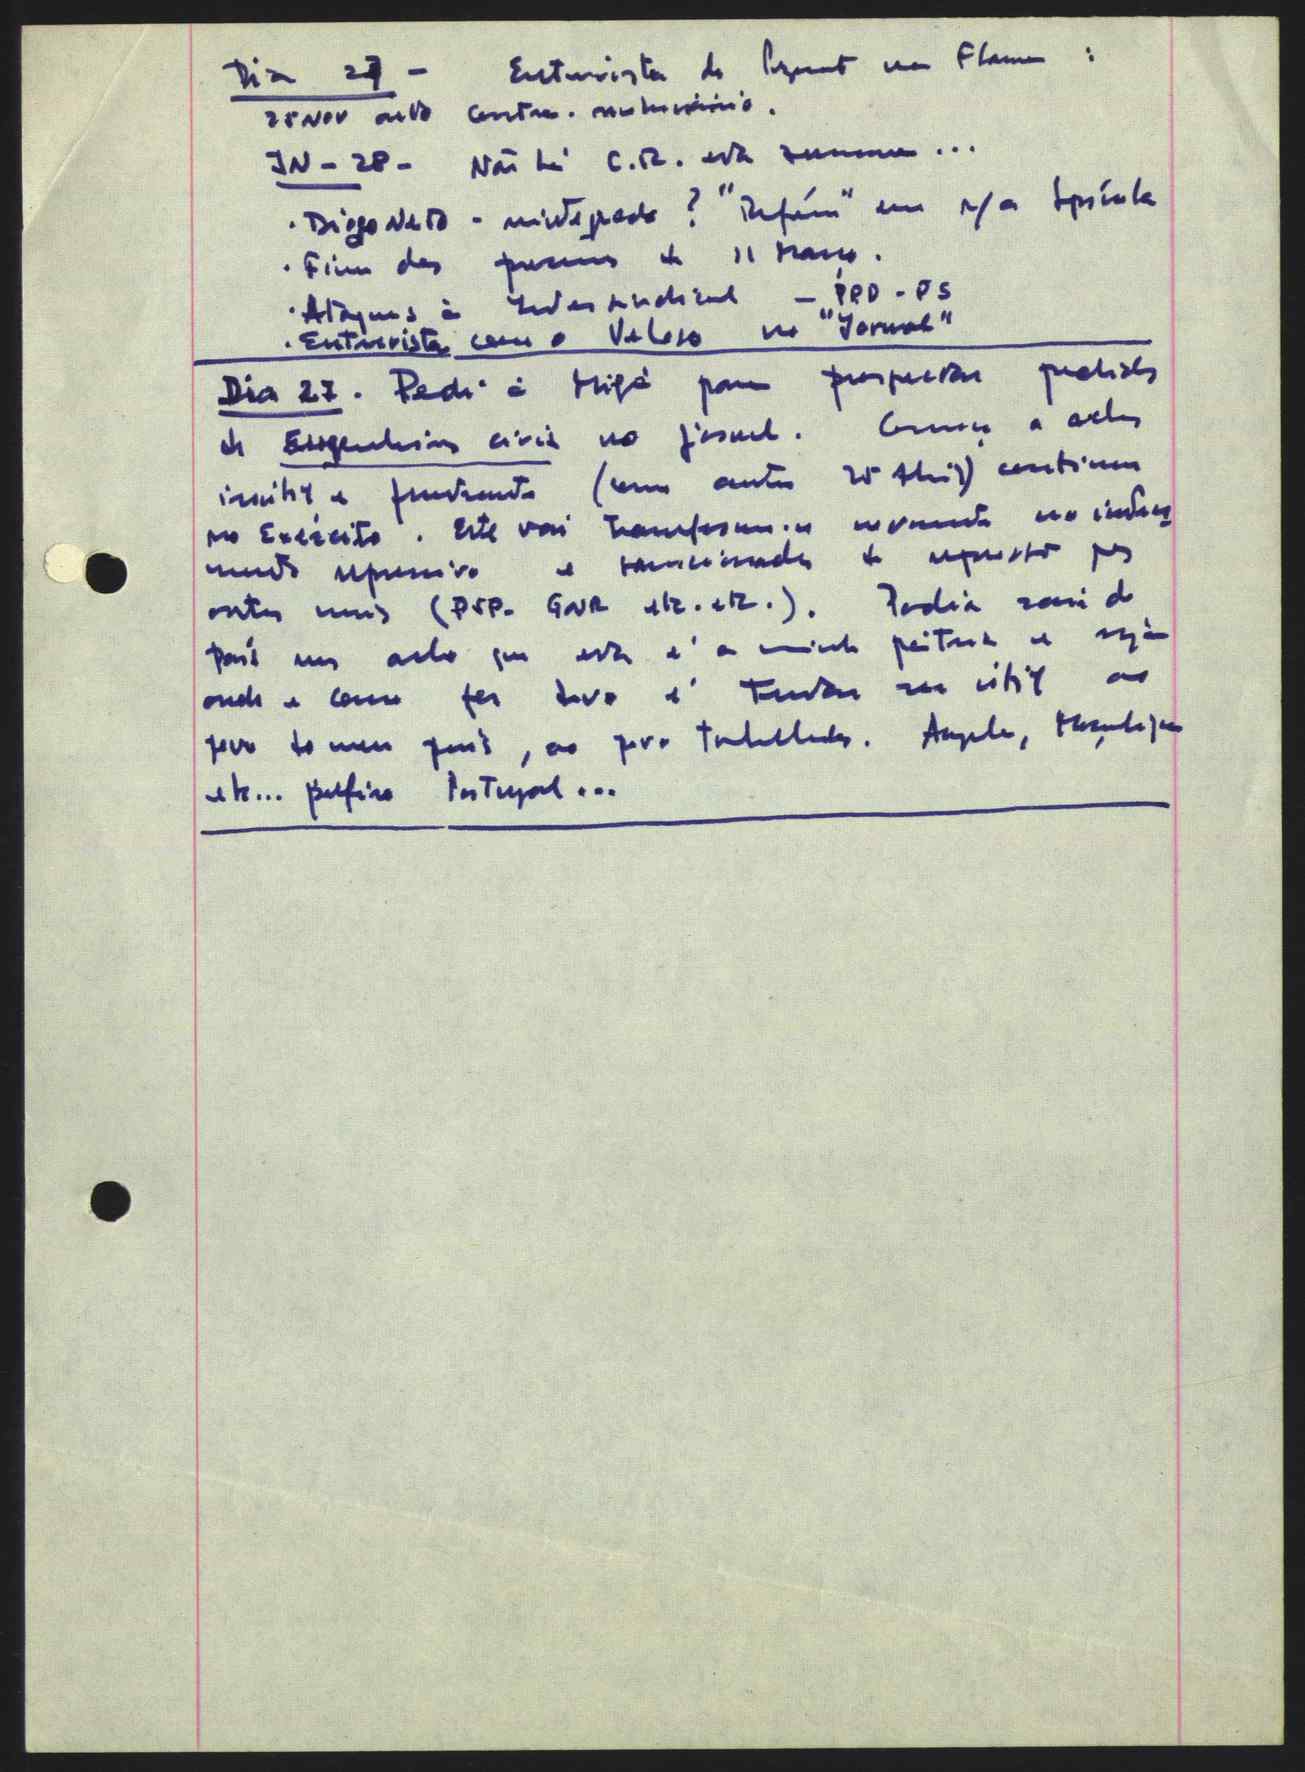 Dia 27 - Entrevista do na Flama :
25 Nov acto contra-revolucionário.
JN - 28 - Não há C.R. esta semana ...
. Diogo Neto - reintegrado ? "Refém" em r/a Spínola
. Fim dos presos de 11 Março.
. Ataques à Intersindical - PPD - PS
. Entrevista com o Veloso no "Jornal"
Dia 27. Pedi à para prospectar pedidos
de Engenheiros civis no jornal. Começo a achar
inútil e frustrante (como antes 25 Abril) continuar
no Exército. Este vai transformar-se novamente no
mento repressivo e de por
outros meios (PSP. GNR etc. etc.). Podia sair do
País mas acho que esta é a minha pátria e seja
onde e como for devo é tentar ser útil ao
povo do meu país, ao povo trabalhador. Angola, Moçambique
etc... prefiro Portugal...